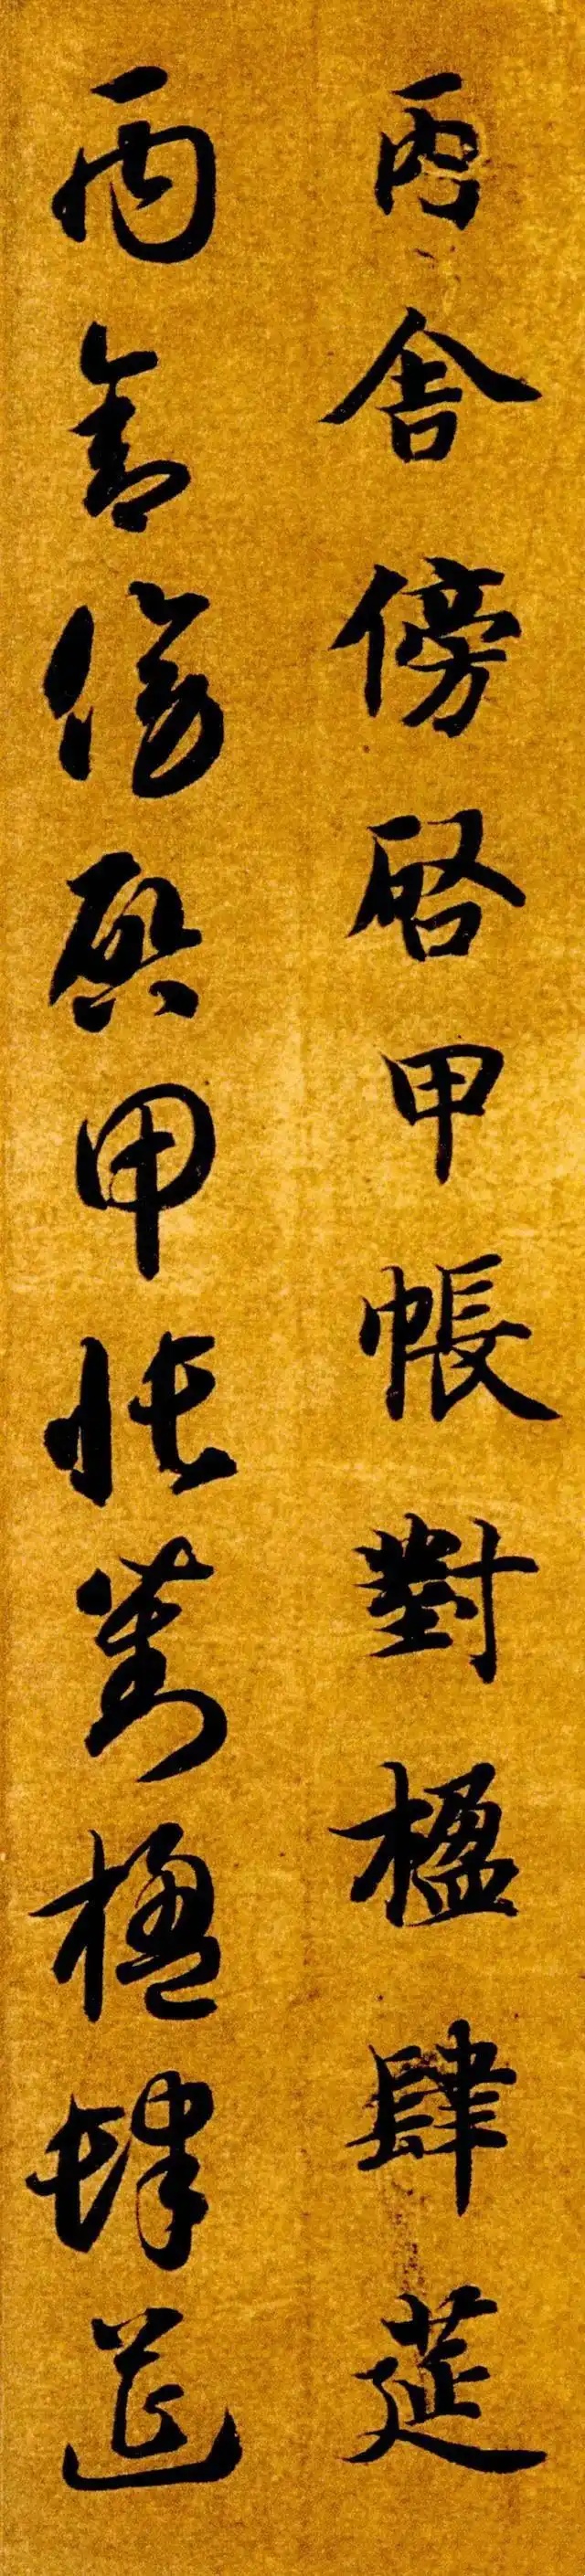 丙舍傍啓甲帳對楹肆莚
丙舍傍啓甲帳對楹肆莚